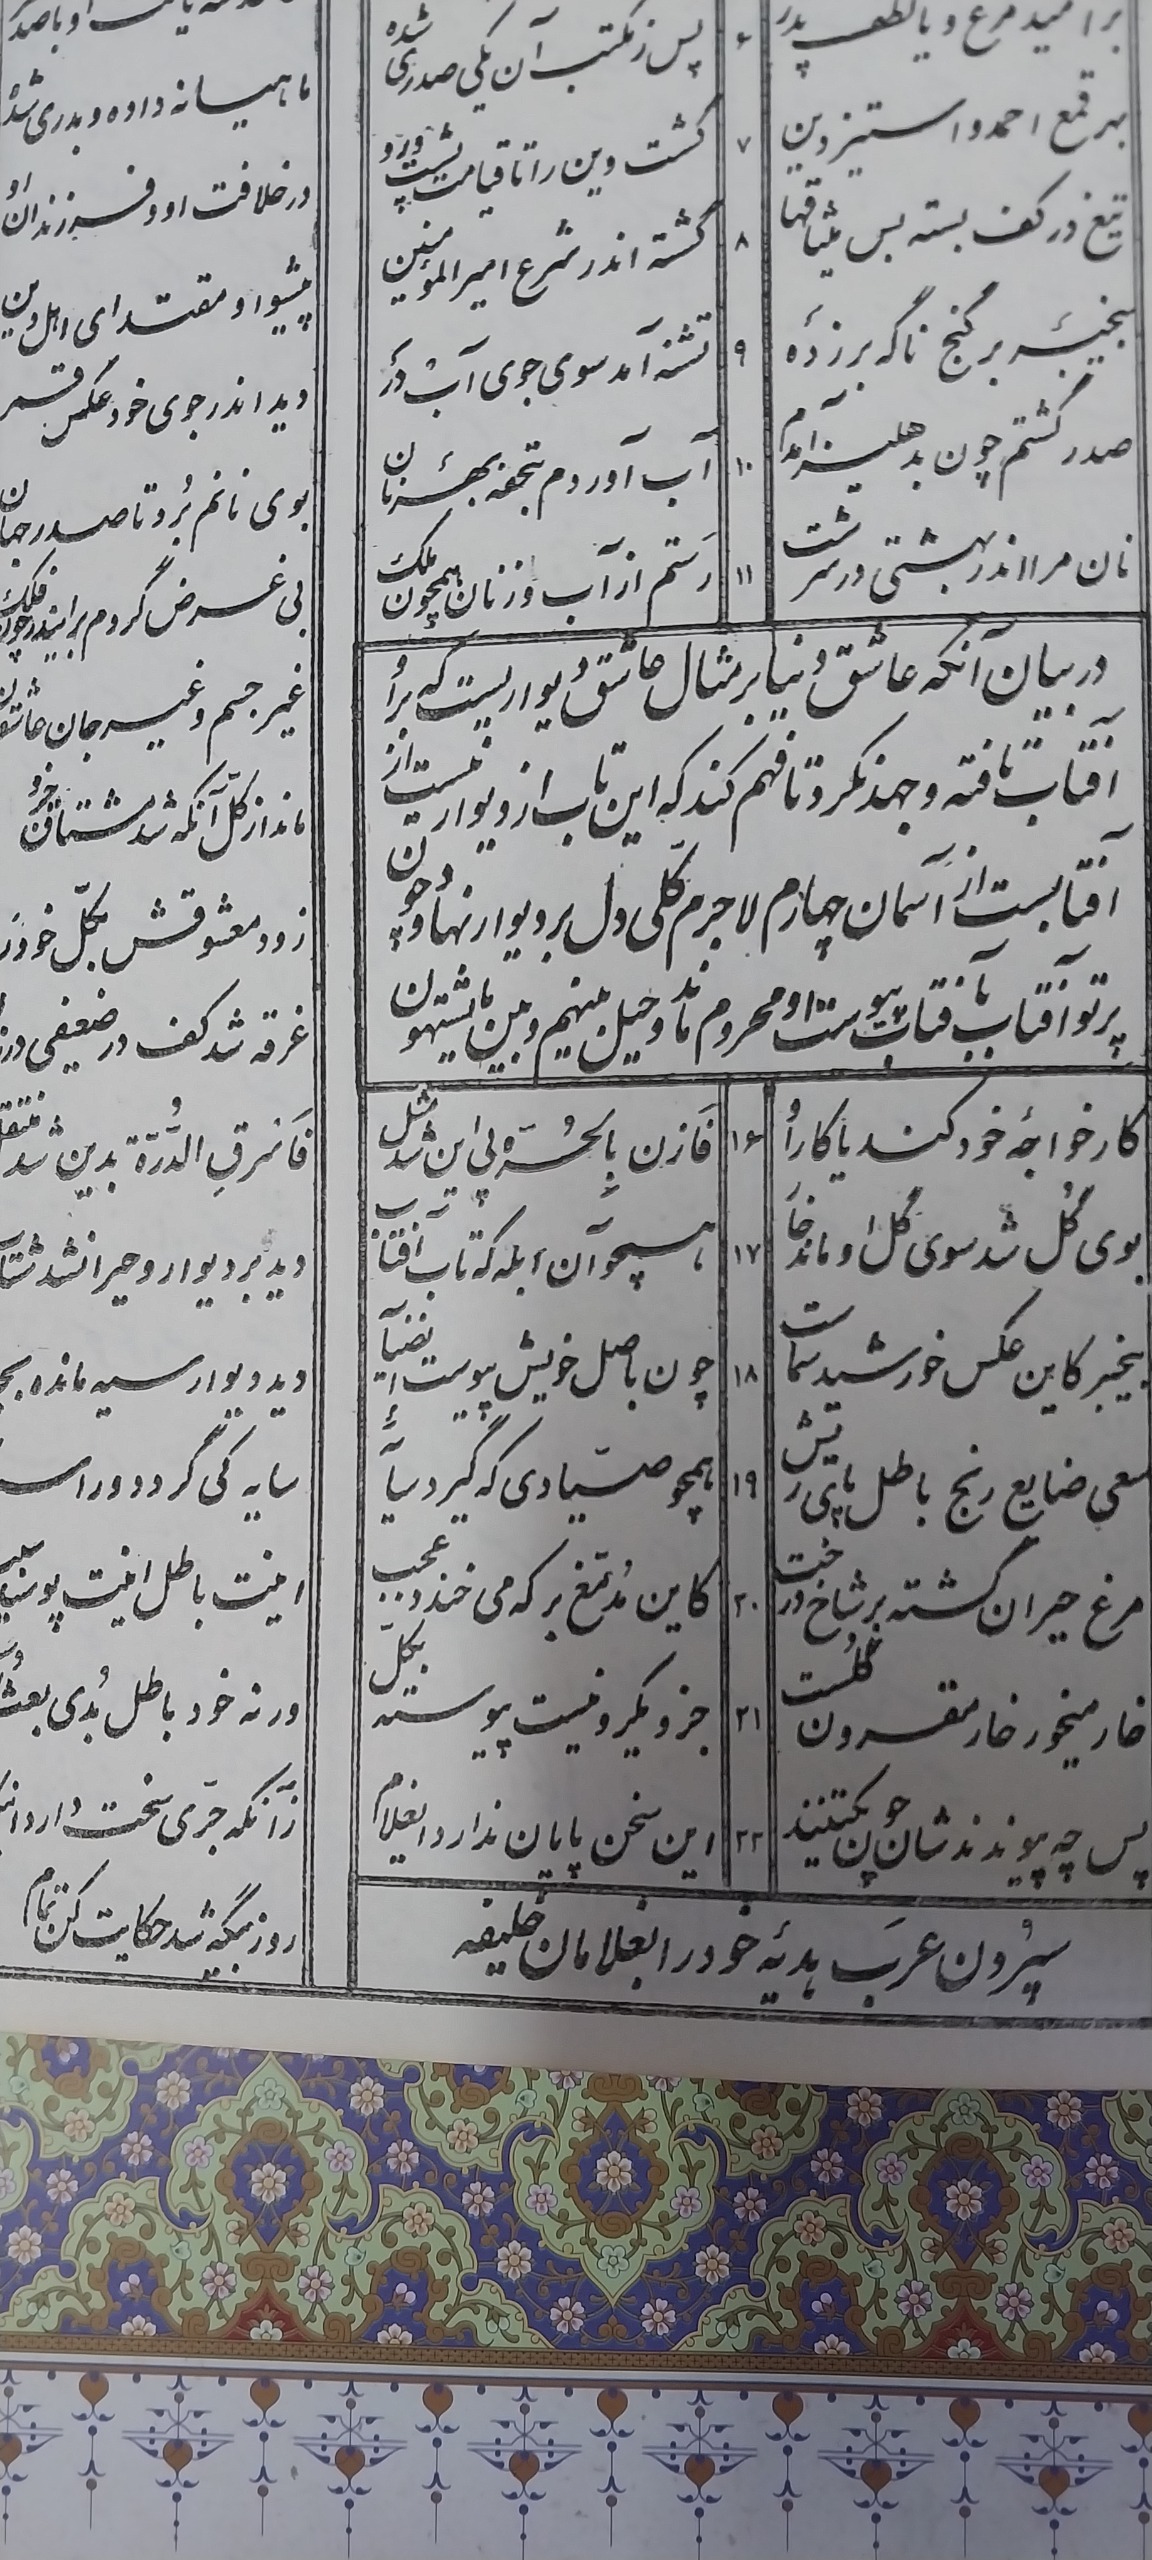 بر امید مرغ و یا لطف پدر
۶
پس ز مکتب آن یکی صدری شده
ماهیانه داده و بدری شده
بهر قمع احمد و استیز دین
۷
گشت دین را تا قیامت پشت و رو
در خلافت او و فرزندان او
تیغ در کف بسته بس میثاقها
۸
گشته اندر شرع امیر المؤمنین
پیشوا و مقتدای اهل دین
بیخبر بر گنج ناگه برزده
۹
تشنه آمد سوی جوی آب در
دید اندر جوی خود عکس قمر
صدر گشتم چون بدهلیز آمدم
۱۰
آب آوردم بتحفه بهر نان
بوی نانم برد تا صدر جهان
نان مرا اندر بهشتی در سرشت
۱۱
رستم از آب و ز نان همچون ملک
بی غرض گردم براین در چون فلک
در بیان آنکه عاشق دنیا بر مثال عاشق دیواریست که برو
آفتاب تافته و جهد نکرد تا فهم کند که این تاب از دیوار نیست از
آفتابست از آسمان چهارم لاجرم کلی دل بر دیوار نهاد و چون
پرتو آفتاب بآفتاب پیوست او محروم ماند و حیل بینهم و بین ما یشتهون
غیر جسم و غیر جان عاشقان
ماند از کلّ آنکه شد مشتاق جزو
زود معشوقش بکلّ خود رود
غرقه شد کف در ضعیفی در زند
کار خواجهٔ خود کند یا کار او
۱۶
فَازن بِالحُرّه پی این شد مثل
فَاسْرقِ الدّرّة بدین شد منتقل
بوی گُل شد سوی گُل او ماند خار
۱۷
همچو آن ابله که تاب آفتاب
دید بر دیوار و حیران شد شتاب
بیخبر کاین عکس خورشید سماست
۱۸
چون باصل خویش پیوست آن ضیا
دید دیوار سیه مانده بجا
سعی ضایع رنج باطل پای ریش
۱۹
همچو صیّادی که گیرد سایهٔ
سایه کی گردد ورا
مرغ حیران گشته بر شاخ درخت
۲۰
کاین مُدمّغ بر که می خندد عجب
اینت باطل اینت پوسیده
خار میخور خار مقرون گلست
۲۱
جز و یکرو نیست پیوسته بکلّ
ورنه خود باطل بُدی بعث
پس چه پیوندندشان چون یکتنند
۲۲
این سخن پایان ندارد ای غلام
روز بیگه شد حکایت کن تمام
سپردن عرب هدیهٔ خود را بغلامان خلیفه